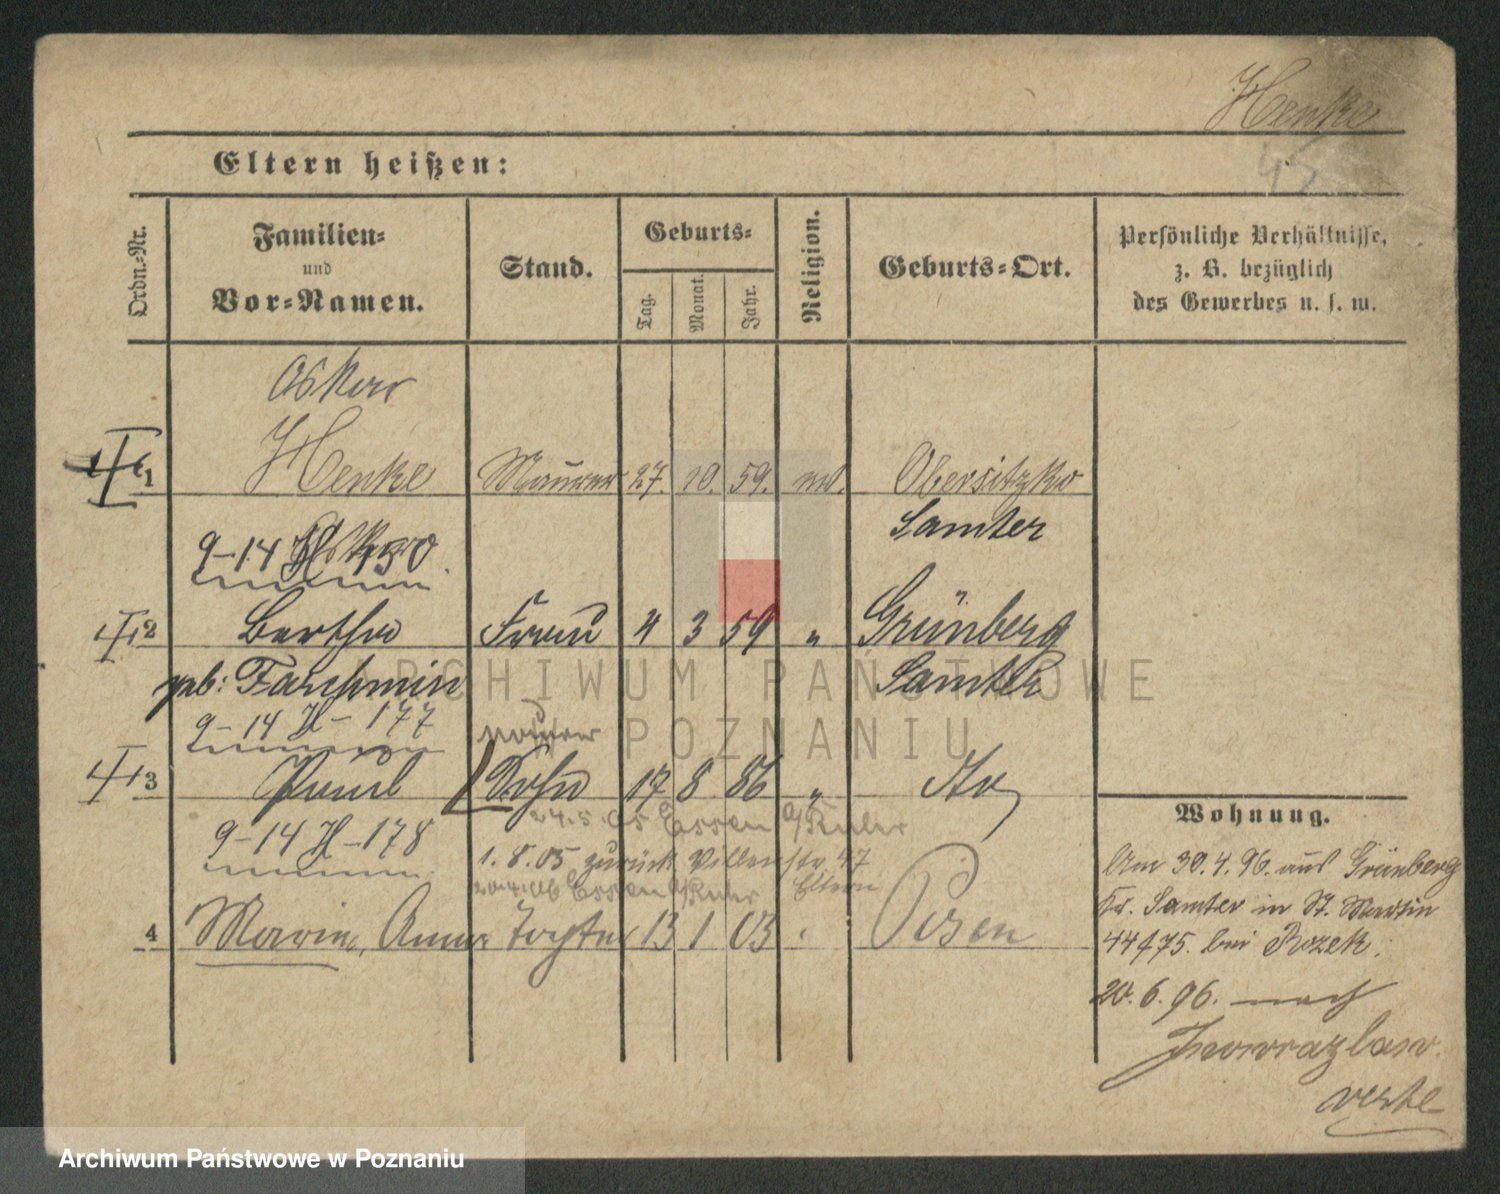 Henke
45
Eltern heißen:
Ordn.-Nr.
Familien-
und
Vor-Namen.
Stand.
Geburts-
Tag.
Monat.
Jahr.
Religion.
Geburts-Ort.
Persönliche Verhältnisse,
z. B. bezüglich
des Gewerbes u. s. w.
Oskar
1 Henke Maurer 27. 10. 59. Obersitzko
Samter
9-14
2 Bertha Frau 4 3 59 " Grünberg
geb: Samter
9-14 H-177
Maurer
3 Paul Sohn 17 8 86 " do
24.5.05 Essen a/Ruhr
9-14 H-178
1.8.05 zurück 47
Essen a/Ruhr Eltern
4 Maria, Anna Tochter 13 1 03 Posen
Wohnung.
Am 30.4.96. aus Grünberg
Kr. Samter in St. Martin
44/75. bei Rozek.
20.6.96. nach
Inowrazlaw.
verte
ARCHIWUM PAŃSTWOWE
W POZNANIU
Archiwum Państwowe w Poznaniu